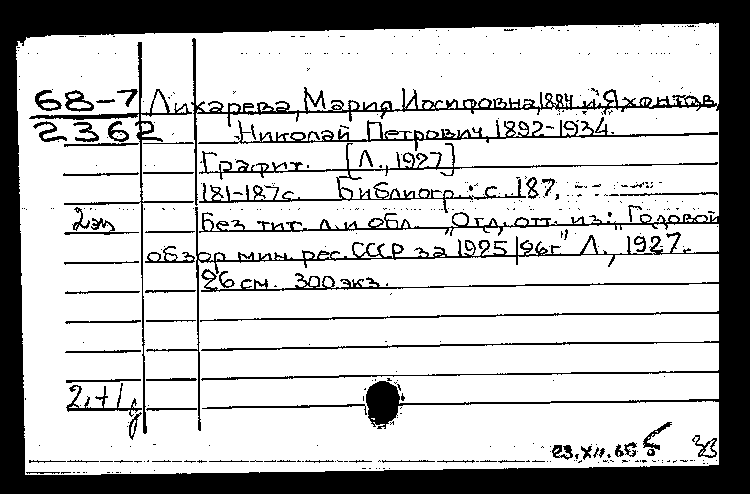 68-7 Лихарева, Мария Иосифовна, 1884 и Яхонтов,
2362 Николай Петрович, 1892-1934.
Графит. [Л., 1927]
181-187 с. Библиогр.: с. 187.
2 экз Без тит. л. и обл. "Отд. отт. из: "Годовой
обзор мин. рес. СССР за 1925/26г" Л., 1927.
26 см. 300 экз.
2,+1
23.XII.66